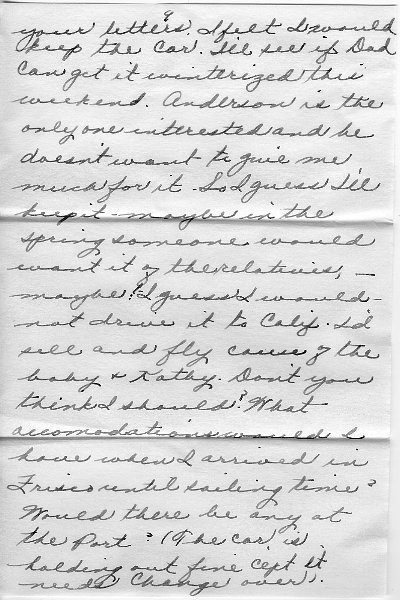 9
your letters. I felt I would
keep the car. I'll see if Dad
can get it winterized this
weekend. Anderson is the
only one interested and he
doesn't want to give me
much for it. So I guess I'll
keep it - maybe in the
spring someone would
want it of the relatives, -
maybe! I guess I would -
not drive it to Calif. I'd
sell and fly cause of the
baby + Kathy. Don't you
think I should? What
accomodations would I
have when I arrived in
Frisco until sailing time?
Would there be any at
the Port? (The car is
holding out fine 'cept it
needs change over).